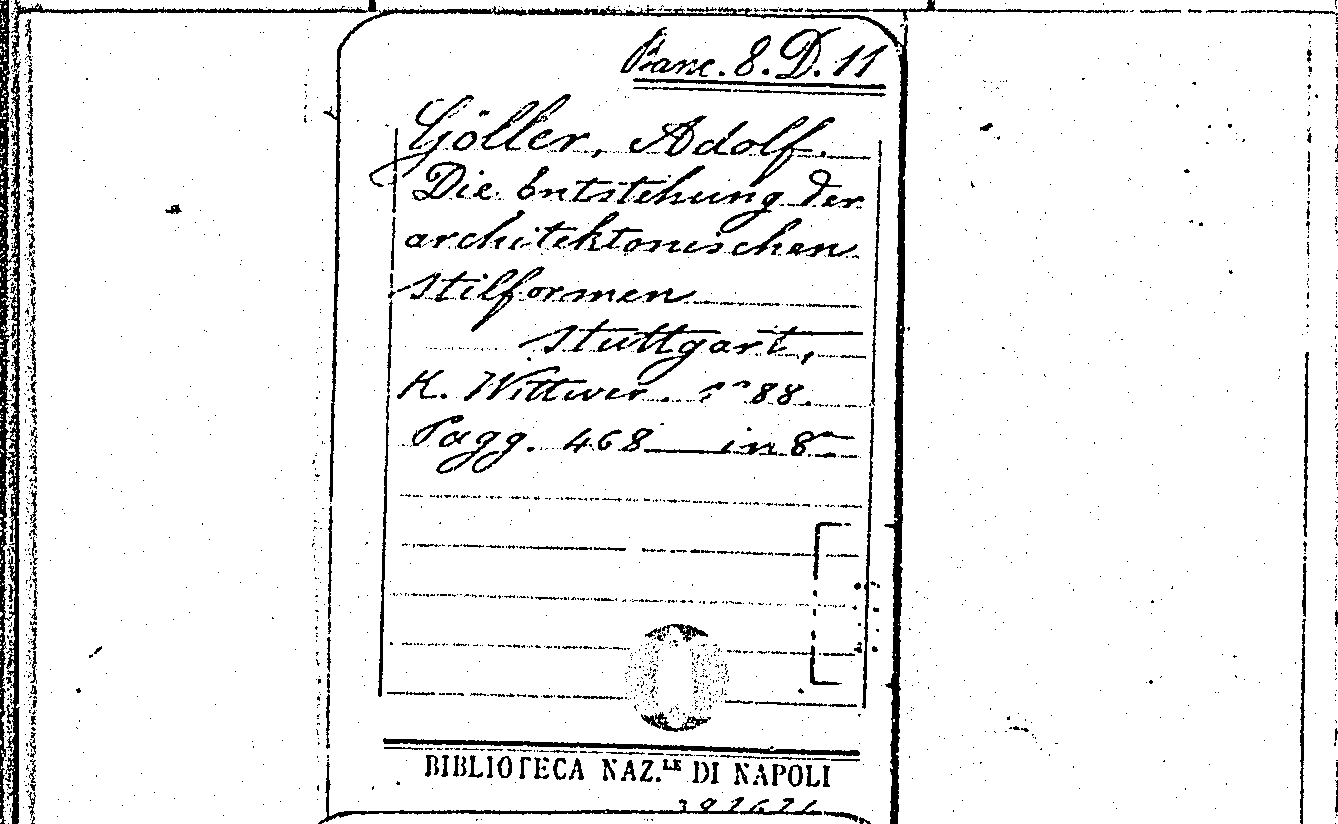 Banc. 8. D. 11
Göller, Adolf.
Die Entstehung der
architektonischen
Stilformen
Stuttgart,
K. Wittwer. 88.
Pagg. 468 — in 8°
BIBLIOTECA NAZ.LE DI NAPOLI